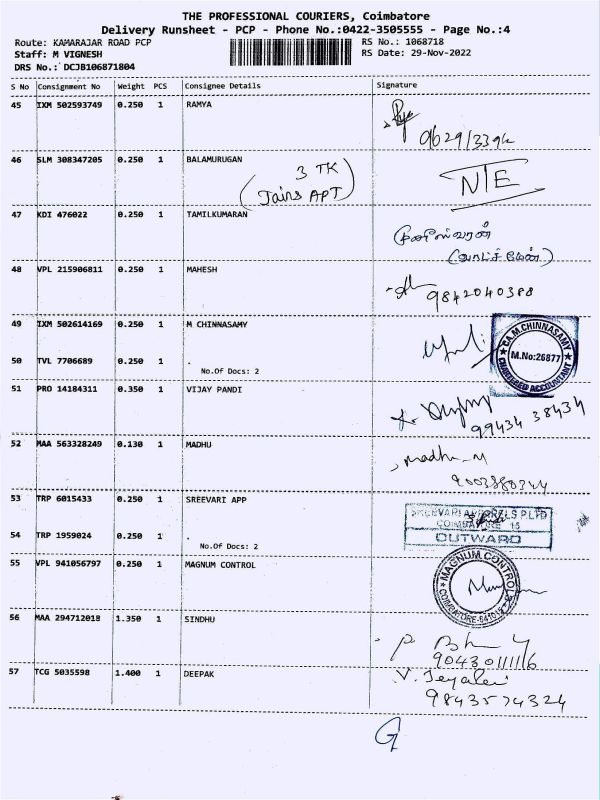 THE PROFESSIONAL COURIERS, Coimbatore
Delivery Runsheet - PCP - Phone No.:0422-3505555 - Page No.:4
Route: KAMARAJAR ROAD PCP
RS No.: 1068718
Staff: M VIGNESH
RS Date: 29-Nov-2022
DRS No.: DCJB106871804
S No Consignment No Weight PCS Consignee Details Signature
45 IXM 502593749 0.250 1 RAMYA
46 SLM 308347205 0.250 1 BALAMURUGAN
3 TK
(Jains APT)
N/E
47 KDI 476022 0.250 1 TAMILKUMARAN
(வாட்ச்மேன்)
48 VPL 215906811 0.250 1 MAHESH
9842040388
49 IXM 502614169 0.250 1 M CHINNASAMY
CA.M.CHINNASAMY
M.No:26877
CHARTERED ACCOUNTANT
50 TVL 7706689 0.250 1 .
No.Of Docs: 2
51 PRO 14184311 0.350 1 VIJAY PANDI
99434 38434
52 MAA 563328249 0.130 1 MADHU
madhu-M
53 TRP 6015433 0.250 1 SREEVARI APP
SREEVARI APPARELS P LTD
COIMBATORE 15
OUTWARD
54 TRP 1959024 0.250 1 .
No.Of Docs: 2
55 VPL 941056797 0.250 1 MAGNUM CONTROL
MAGNUM CONTROLS
COIMBATORE-641015
56 MAA 294712018 1.350 1 SINDHU
57 TCG 5035598 1.400 1 DEEPAK
9843574324